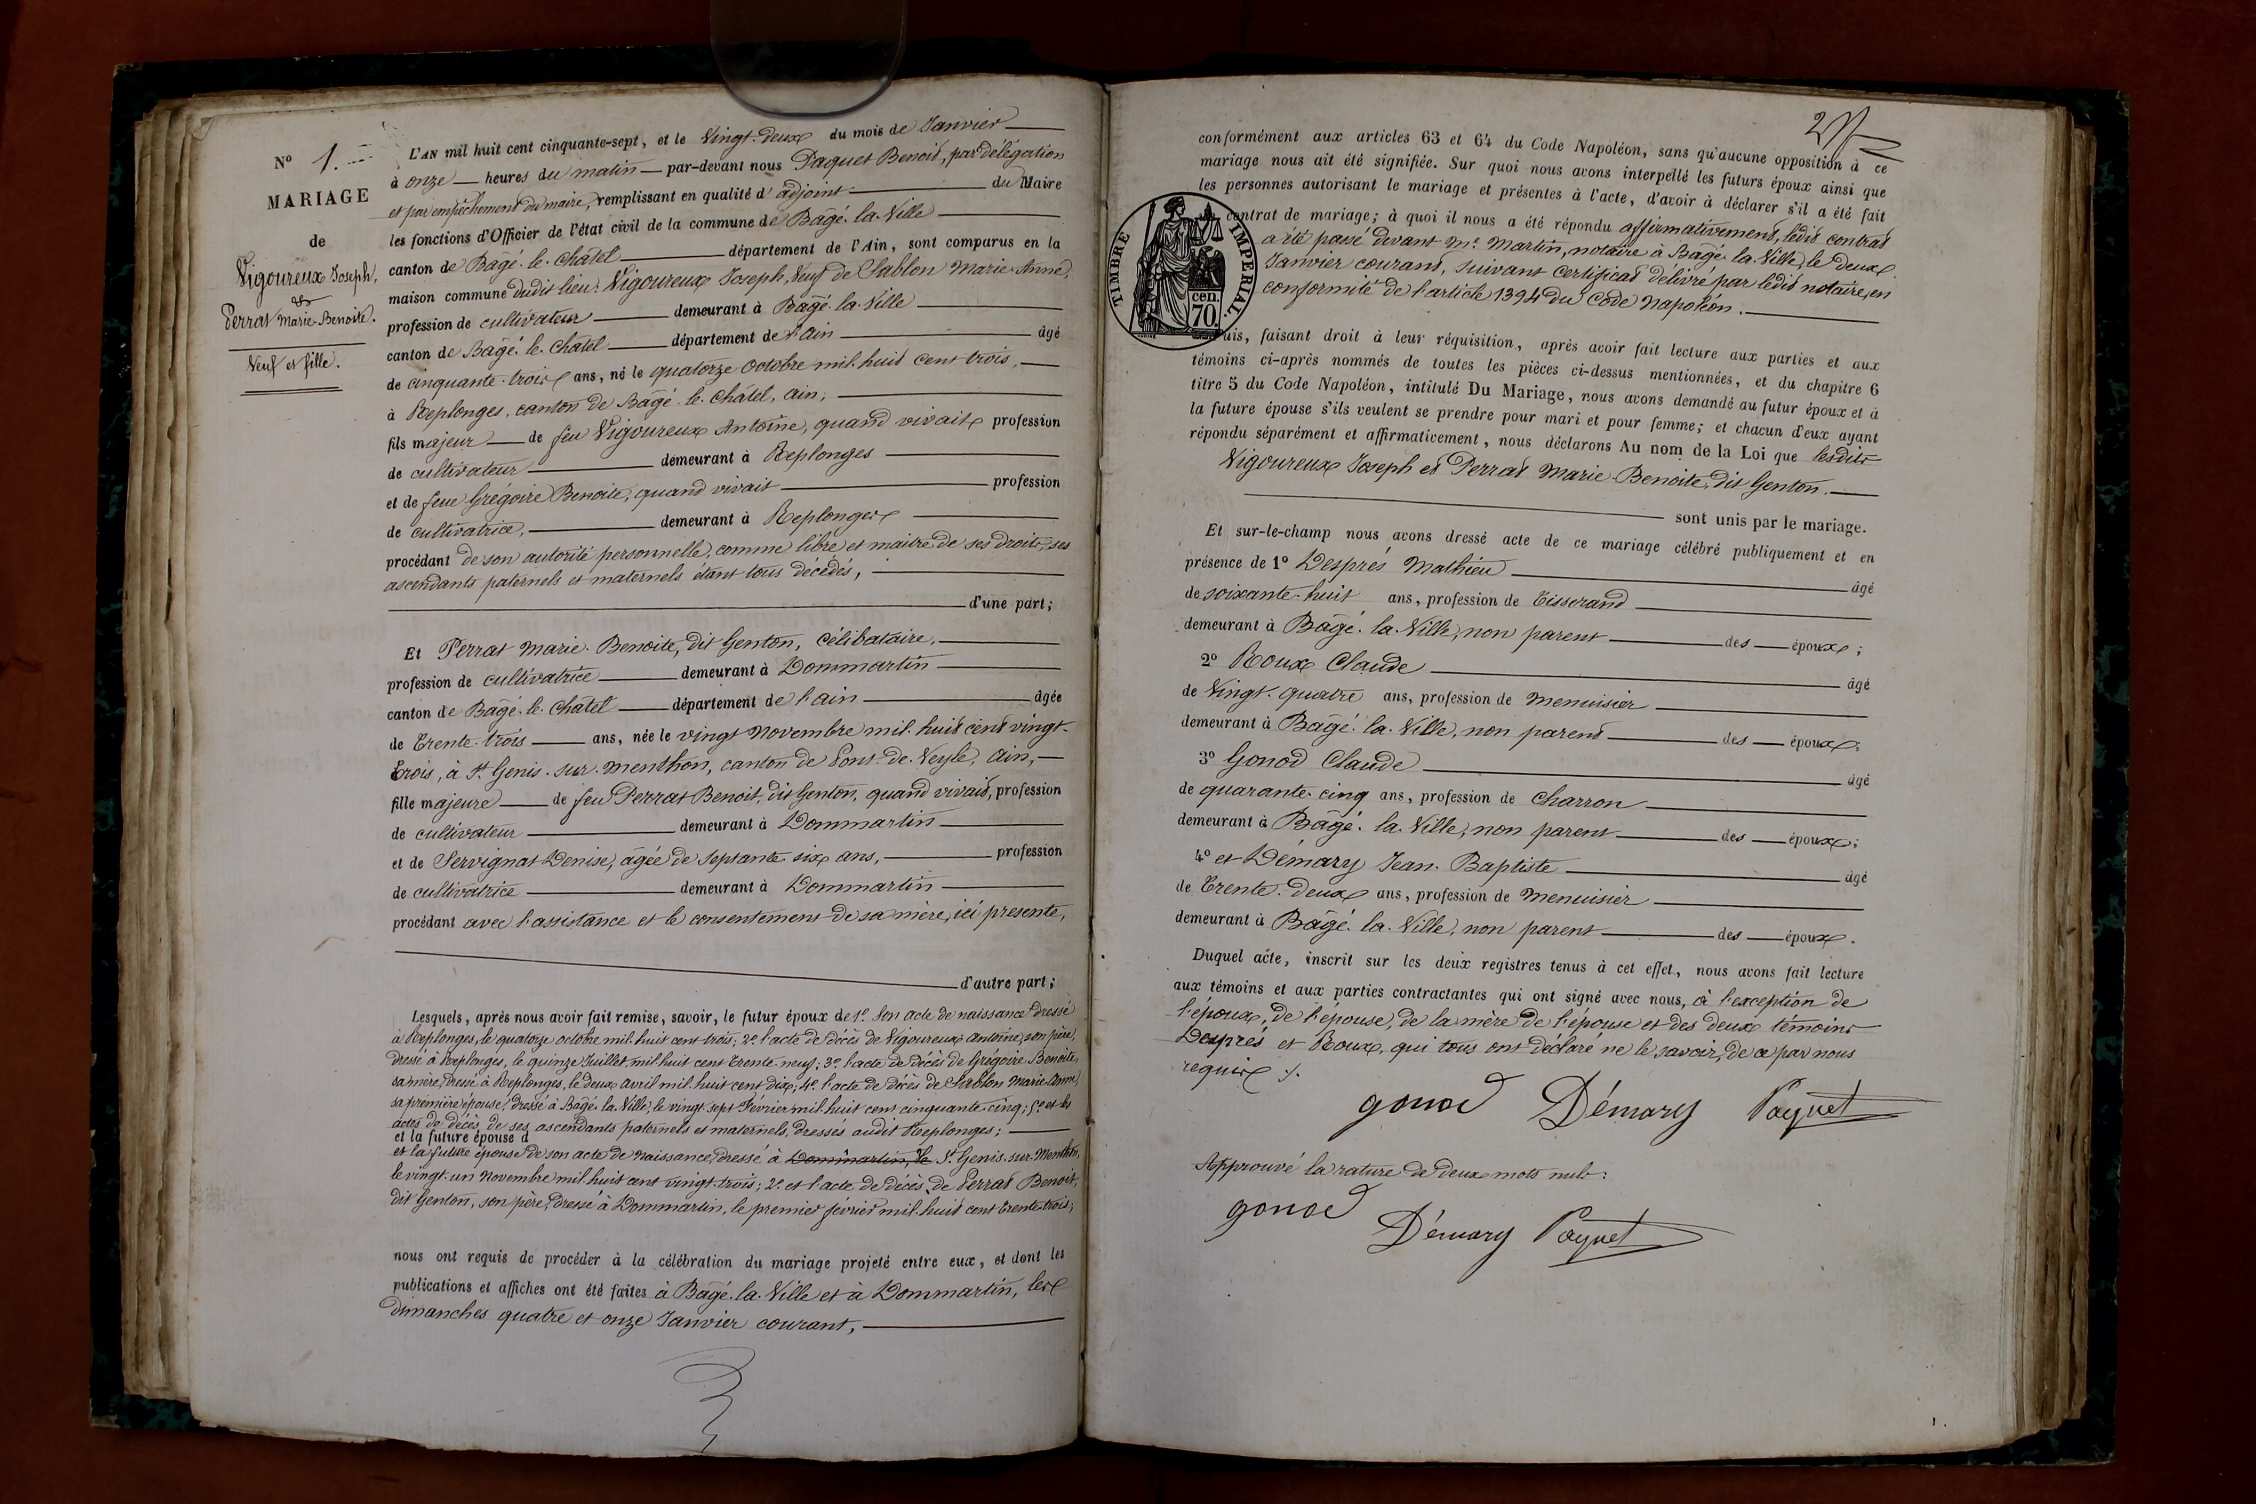 N° 1.
MARIAGE
de
Vigoureux Joseph,
et
Perrat Marie-Benoite.
Veuf et fille.
L'AN mil huit cent cinquante-sept, et le Vingt-deux du mois de Janvier
à onze heures du matin par-devant nous Paquet Benoit, par délégation
et par empêchement du maire, remplissant en qualité d'adjoint du Maire
les fonctions d'Officier de l'état civil de la commune de Bâgé-la-Ville
canton de Bâgé-le-Châtel département de l'Ain, sont comparus en la
maison commune dudit lieu: Vigoureux Joseph, Veuf de Sablon Marie-Anne,
profession de cultivateur demeurant à Bâgé-la-Ville
canton de Bâgé-le-Châtel département de l'ain âgé
de cinquante-trois ans, né le quatorze octobre mil-huit cent-trois,
à Replonges, canton de Bâgé-le-Châtel, ain,
fils majeur de feu Vigoureux Antoine, quand vivait profession
de cultivateur demeurant à Replonges
et de feue Grégoire Benoite, quand vivait profession
de cultivatrice, demeurant à Replonges
procédant de son autorité personnelle, comme libre et maître de ses droits, ses
ascendants paternels et maternels étant tous décédés,
d'une part;
Et Perrat Marie-Benoite, dit Genton, célibataire,
profession de cultivatrice demeurant à Dommartin
canton de Bâgé-le-Châtel département de l'ain âgée
de Trente-trois ans, née le vingt novembre mil-huit cent vingt-
trois, à St Genis-sur-Menthon, canton de Pont-de-Veyle, ain,
fille majeure de feu Perrat Benoit, dit Genton, quand vivait, profession
de cultivateur demeurant à Dommartin
et de Servignat Denise, âgée de Septante-six ans, profession
de cultivatrice demeurant à Dommartin
procédant avec l'assistance et le consentement de sa mère, ici présente,
d'autre part;
Lesquels, après nous avoir fait remise, savoir, le futur époux de 1° Son acte de naissance dressé
à Replonges, le quatorze octobre mil-huit cent-trois; 2° l'acte de décès de Vigoureux Antoine, son père,
dressé à Replonges, le quinze Juillet mil-huit cent Trente-neuf; 3° l'acte de décès de Grégoire Benoite,
sa mère, dressé à Replonges, le deux avril mil-huit cent dix; 4° l'acte de décès de Sablon Marie-Anne,
sa première épouse, dressé à Bâgé-la-Ville, le vingt-sept Février mil-huit cent cinquante-cinq; 5° et les
actes de décès de ses ascendants paternels et maternels, dressés audit Replonges;
et la future épouse d
et la future épouse de son acte de naissance, dressé à Dommartin, le St Genis-sur-Menthon,
le vingt-un novembre mil-huit cent vingt-trois; 2° et l'acte de décès de Perrat Benoit,
dit Genton, son père, dressé à Dommartin, le premier février mil-huit cent Trente-trois;
nous ont requis de procéder à la célébration du mariage projeté entre eux, et dont les
publications et affiches ont été faites à Bâgé-la-Ville et à Dommartin, les
dimanches quatre et onze Janvier courant,
conformément aux articles 63 et 64 du Code Napoléon, sans qu'aucune opposition à ce
mariage nous ait été signifiée. Sur quoi nous avons interpellé les futurs époux ainsi que
les personnes autorisant le mariage et présentes à l'acte, d'avoir à déclarer s'il a été fait
contrat de mariage; à quoi il nous a été répondu affirmativement, ledit contrat
a été passé devant Me Martin, notaire à Bâgé-la-Ville, le deux
Janvier courant, suivant certificat délivré par ledit notaire, en
conformité de l'article 1394 du Code Napoléon.
TIMBRE IMPERIAL
70 cen.
Puis, faisant droit à leur réquisition, après avoir fait lecture aux parties et aux
témoins ci-après nommés de toutes les pièces ci-dessus mentionnées, et du chapitre 6
titre 5 du Code Napoléon, intitulé Du Mariage, nous avons demandé au futur époux et à
la future épouse s'ils veulent se prendre pour mari et pour femme; et chacun d'eux ayant
répondu séparément et affirmativement, nous déclarons Au nom de la Loi que lesdits
Vigoureux Joseph et Perrat Marie-Benoite, dit Genton.
sont unis par le mariage.
Et sur-le-champ nous avons dressé acte de ce mariage célébré publiquement et en
présence de 1° Després Mathieu âgé
de soixante-huit ans, profession de Tisserand
demeurant à Bâgé-la-Ville, non parent des époux;
2° Roux Claude âgé
de Vingt-quatre ans, profession de menuisier
demeurant à Bâgé-la-Ville, non parent des époux;
3° Gonod Claude âgé
de quarante-cinq ans, profession de charron
demeurant à Bâgé-la-Ville, non parent des époux;
4° et Démary Jean-Baptiste âgé
de Trente-deux ans, profession de menuisier
demeurant à Bâgé-la-Ville, non parent des époux.
Duquel acte, inscrit sur les deux registres tenus à cet effet, nous avons fait lecture
aux témoins et aux parties contractantes qui ont signé avec nous, à l'exception de
l'époux, de l'épouse, de la mère de l'épouse et des deux témoins
Després et Roux, qui tous ont déclaré ne le savoir, de ce par nous
requis ./.
gonod Démary Paquet
Approuvé la rature de deux mots nuls:
gonod
Démary Paquet